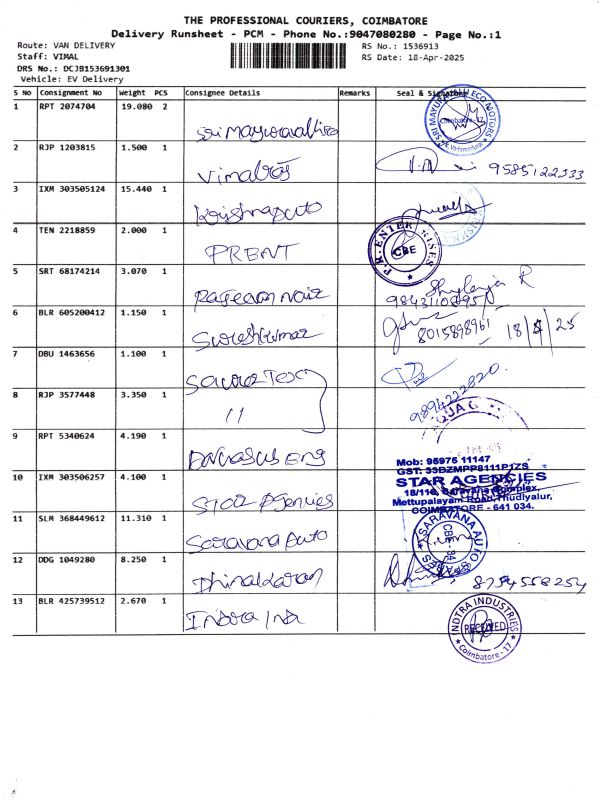 THE PROFESSIONAL COURIERS, COIMBATORE
Delivery Runsheet - PCM - Phone No.:9047080280 - Page No.:1
Route: VAN DELIVERY
Staff: VIMAL
DRS No.: DCJB153691301
Vehicle: EV Delivery
RS No.: 1536913
RS Date: 18-Apr-2025
S No Consignment No Weight PCS Consignee Details Remarks Seal & Signature
1 RPT 2074704 19.080 2
Coimbatore
2 RJP 1203815 1.500 1 9585122333
3 IXM 303505124 15.440 1
4 TEN 2218859 2.000 1 PRENT
P.R. ENTERPRISES
CBE
5 SRT 68174214 3.070 1
6 BLR 605200412 1.150 1 Sureshkumar 8015898961
7 DBU 1463656 1.100 1
9894222820
8 RJP 3577448 3.350 1 11
9 RPT 5340624 4.190 1
Mob: 95975 11147
GST: 33BZMPP8111P1ZS
STAR AGENCIES
18/110, Saravana Complex,
Mettupalayam Road, Thudiyalur,
COIMBATORE - 641 034.
10 IXM 303506257 4.100 1 Star Agencies
11 SLM 368449612 11.310 1 Saravana Auto
SARAVANA AUTO
12 DDG 1049280 8.250 1 Dhinakaran 8754558254
13 BLR 425739512 2.670 1 Indra Ind
INDTRA INDUSTRIES
RECEIVED
Coimbatore - 17